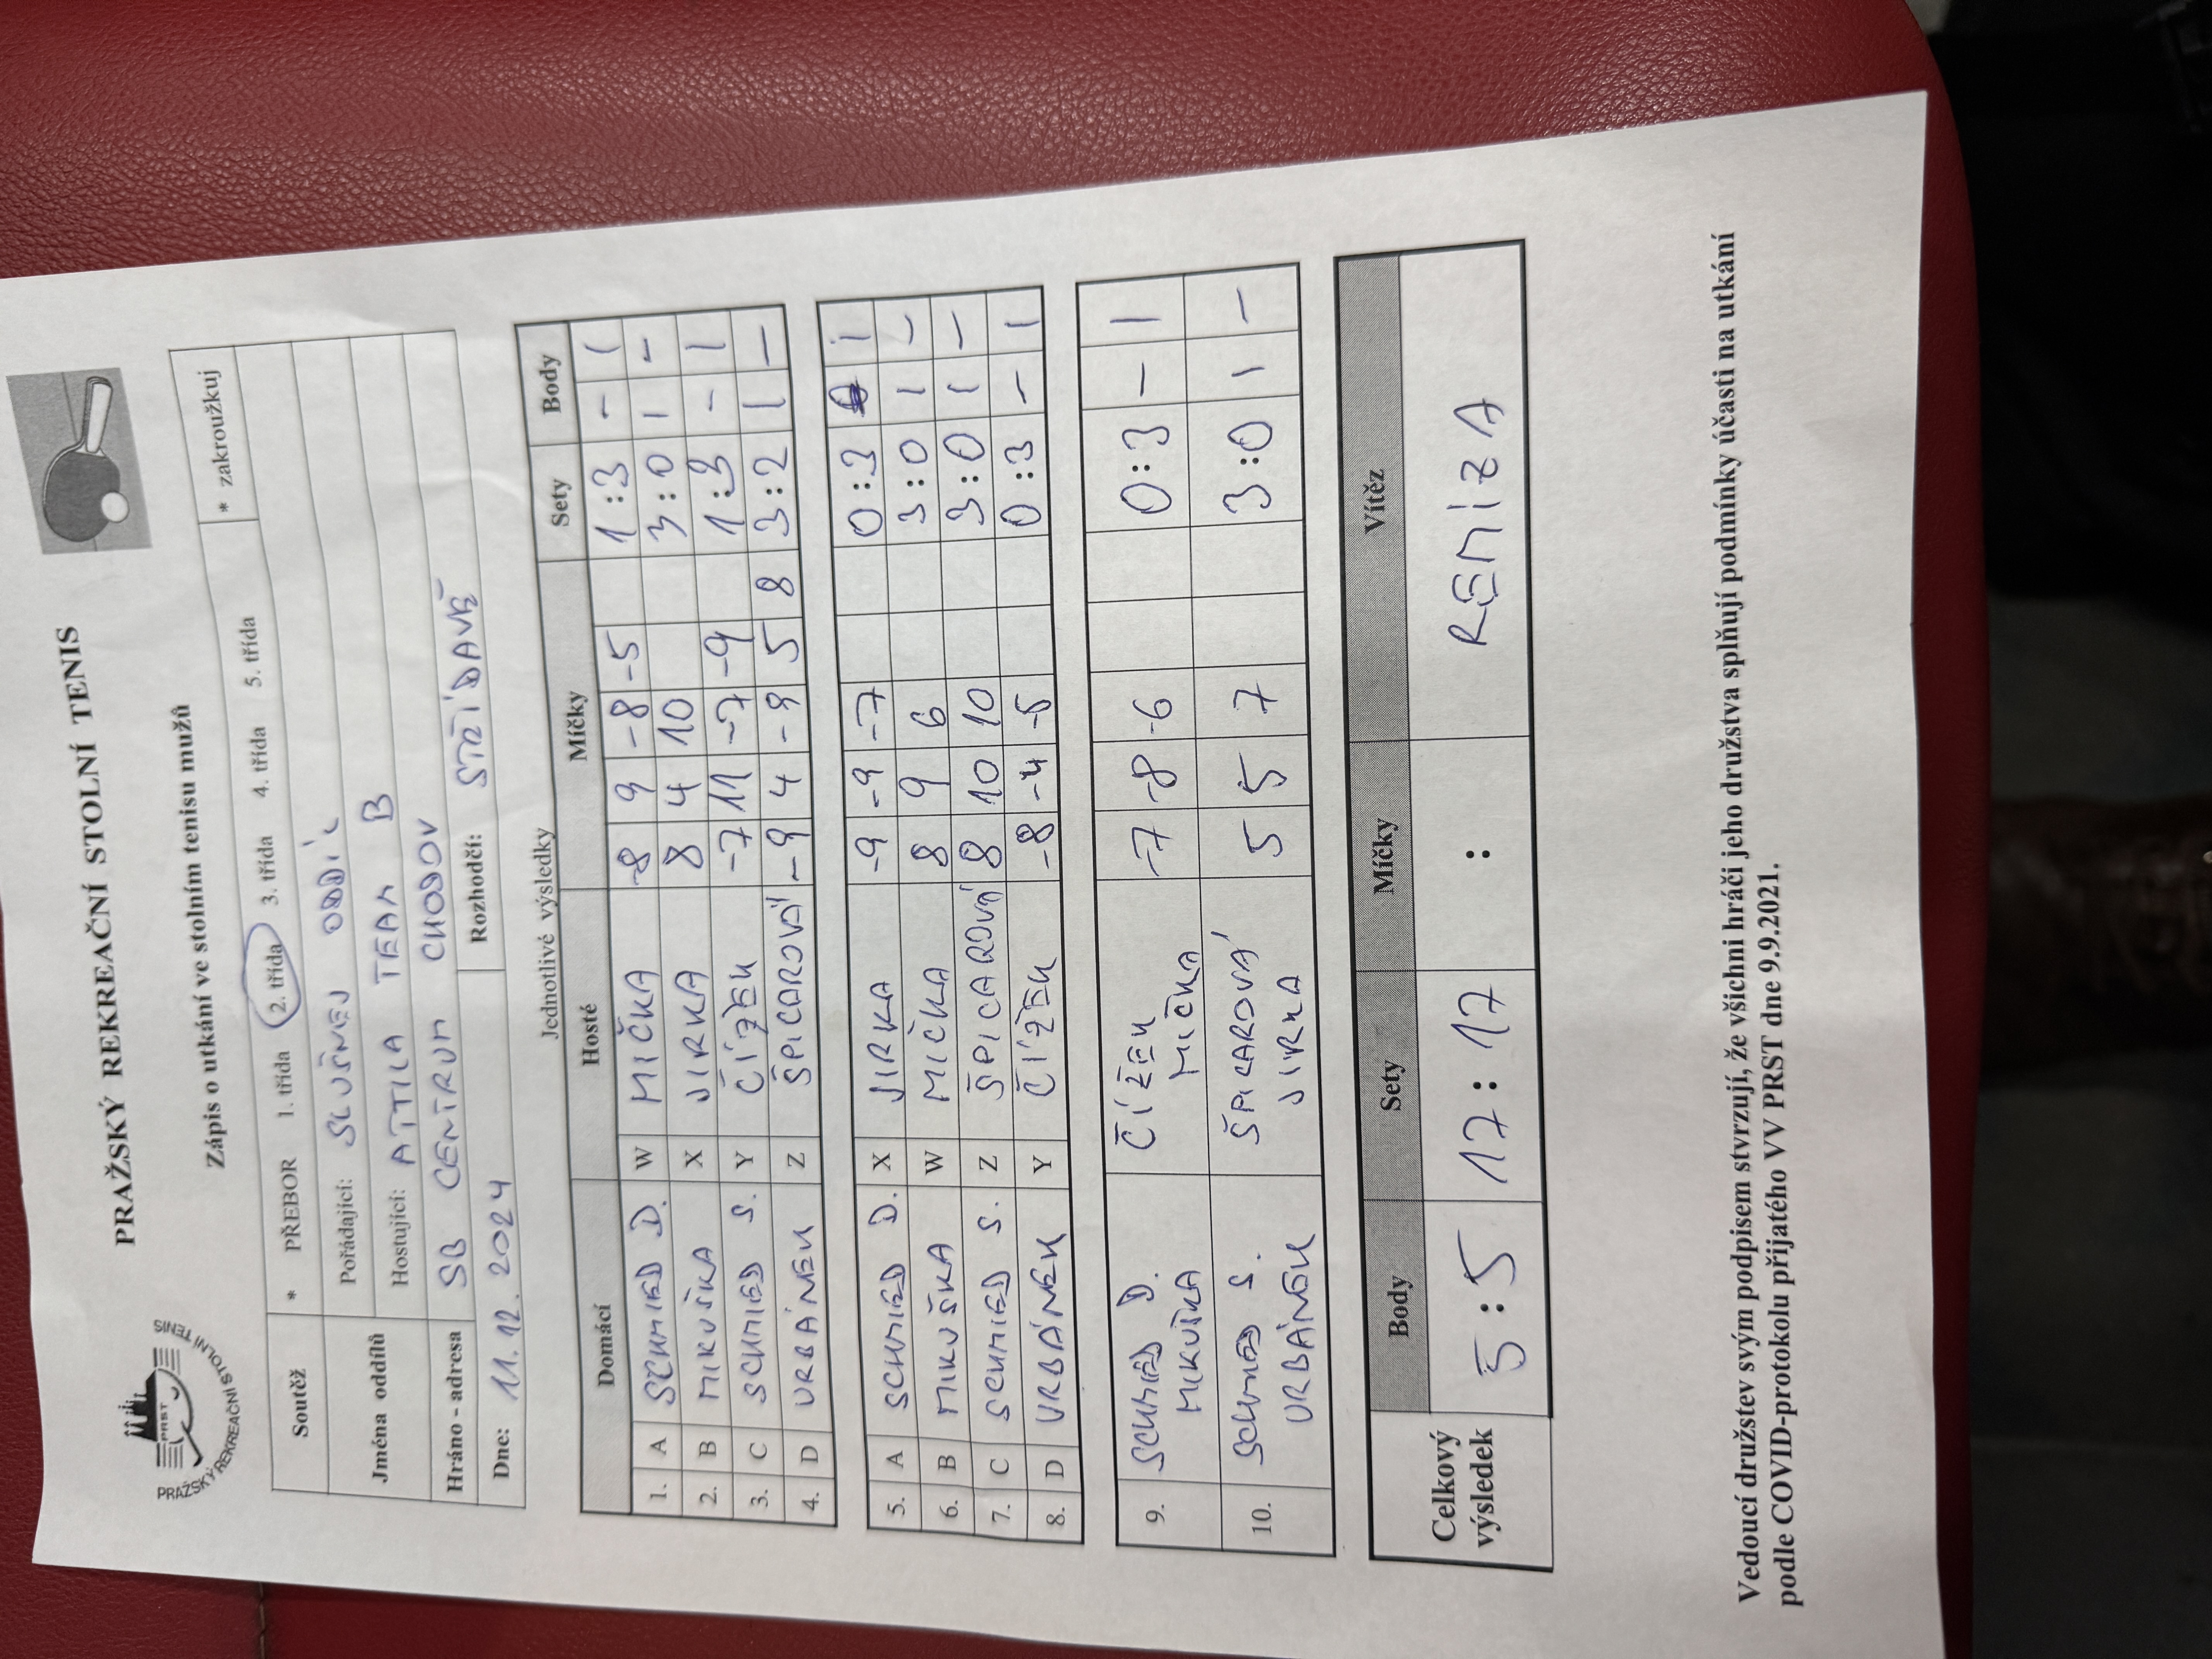 PRAŽSKÝ REKREAČNÍ STOLNÍ TENIS
PRST
PRAŽSKÝ REKREAČNÍ STOLNÍ TENIS
Zápis o utkání ve stolním tenisu mužů
Soutěž * PŘEBOR 1. třída 2. třída 3. třída 4. třída 5. třída * zakroužkuj
Jména oddílů Pořádající: SLUŠNEJ ODDÍL
Hostující: ATTILA TEAM B
Hráno - adresa SB CENTRUM CHODOV
Dne: 11.12.2024 Rozhodčí: STŘÍDAVĚ
Jednotlivé výsledky
Domácí Hosté Míčky Sety Body
1. A SCHMIED D. W MIČKA -8 9 -8 -5 1:3 - 1
2. B MIKUŠKA X JIRKA 8 4 10 3:0 1 -
3. C SCHMIED S. Y ČÍŽEK -7 11 -7 -9 1:3 - 1
4. D URBÁNEK Z ŠPICAROVÁ -9 4 -9 5 8 3:2 1 -
5. A SCHMIED D. X JIRKA -9 -9 -7 0:3 1
6. B MIKUŠKA W MIČKA 8 9 6 3:0 1 -
7. C SCHMIED S. Z ŠPICAROVÁ 8 10 10 3:0 1 -
8. D URBÁNEK Y ČÍŽEK -8 -4 -5 0:3 - 1
9. SCHMIED D. ČÍŽEK -7 -8 -6 0:3 - 1
MIKUŠKA MIČKA
10. SCHMIED S. ŠPICAROVÁ 5 5 7 3:0 1 -
URBÁNEK JIRKA
Celkový výsledek Body Sety Míčky Vítěz
5:5 17:17 : REMÍZA
Vedoucí družstev svým podpisem stvrzují, že všichni hráči jeho družstva splňují podmínky účasti na utkání
podle COVID-protokolu přijatého VV PRST dne 9.9.2021.